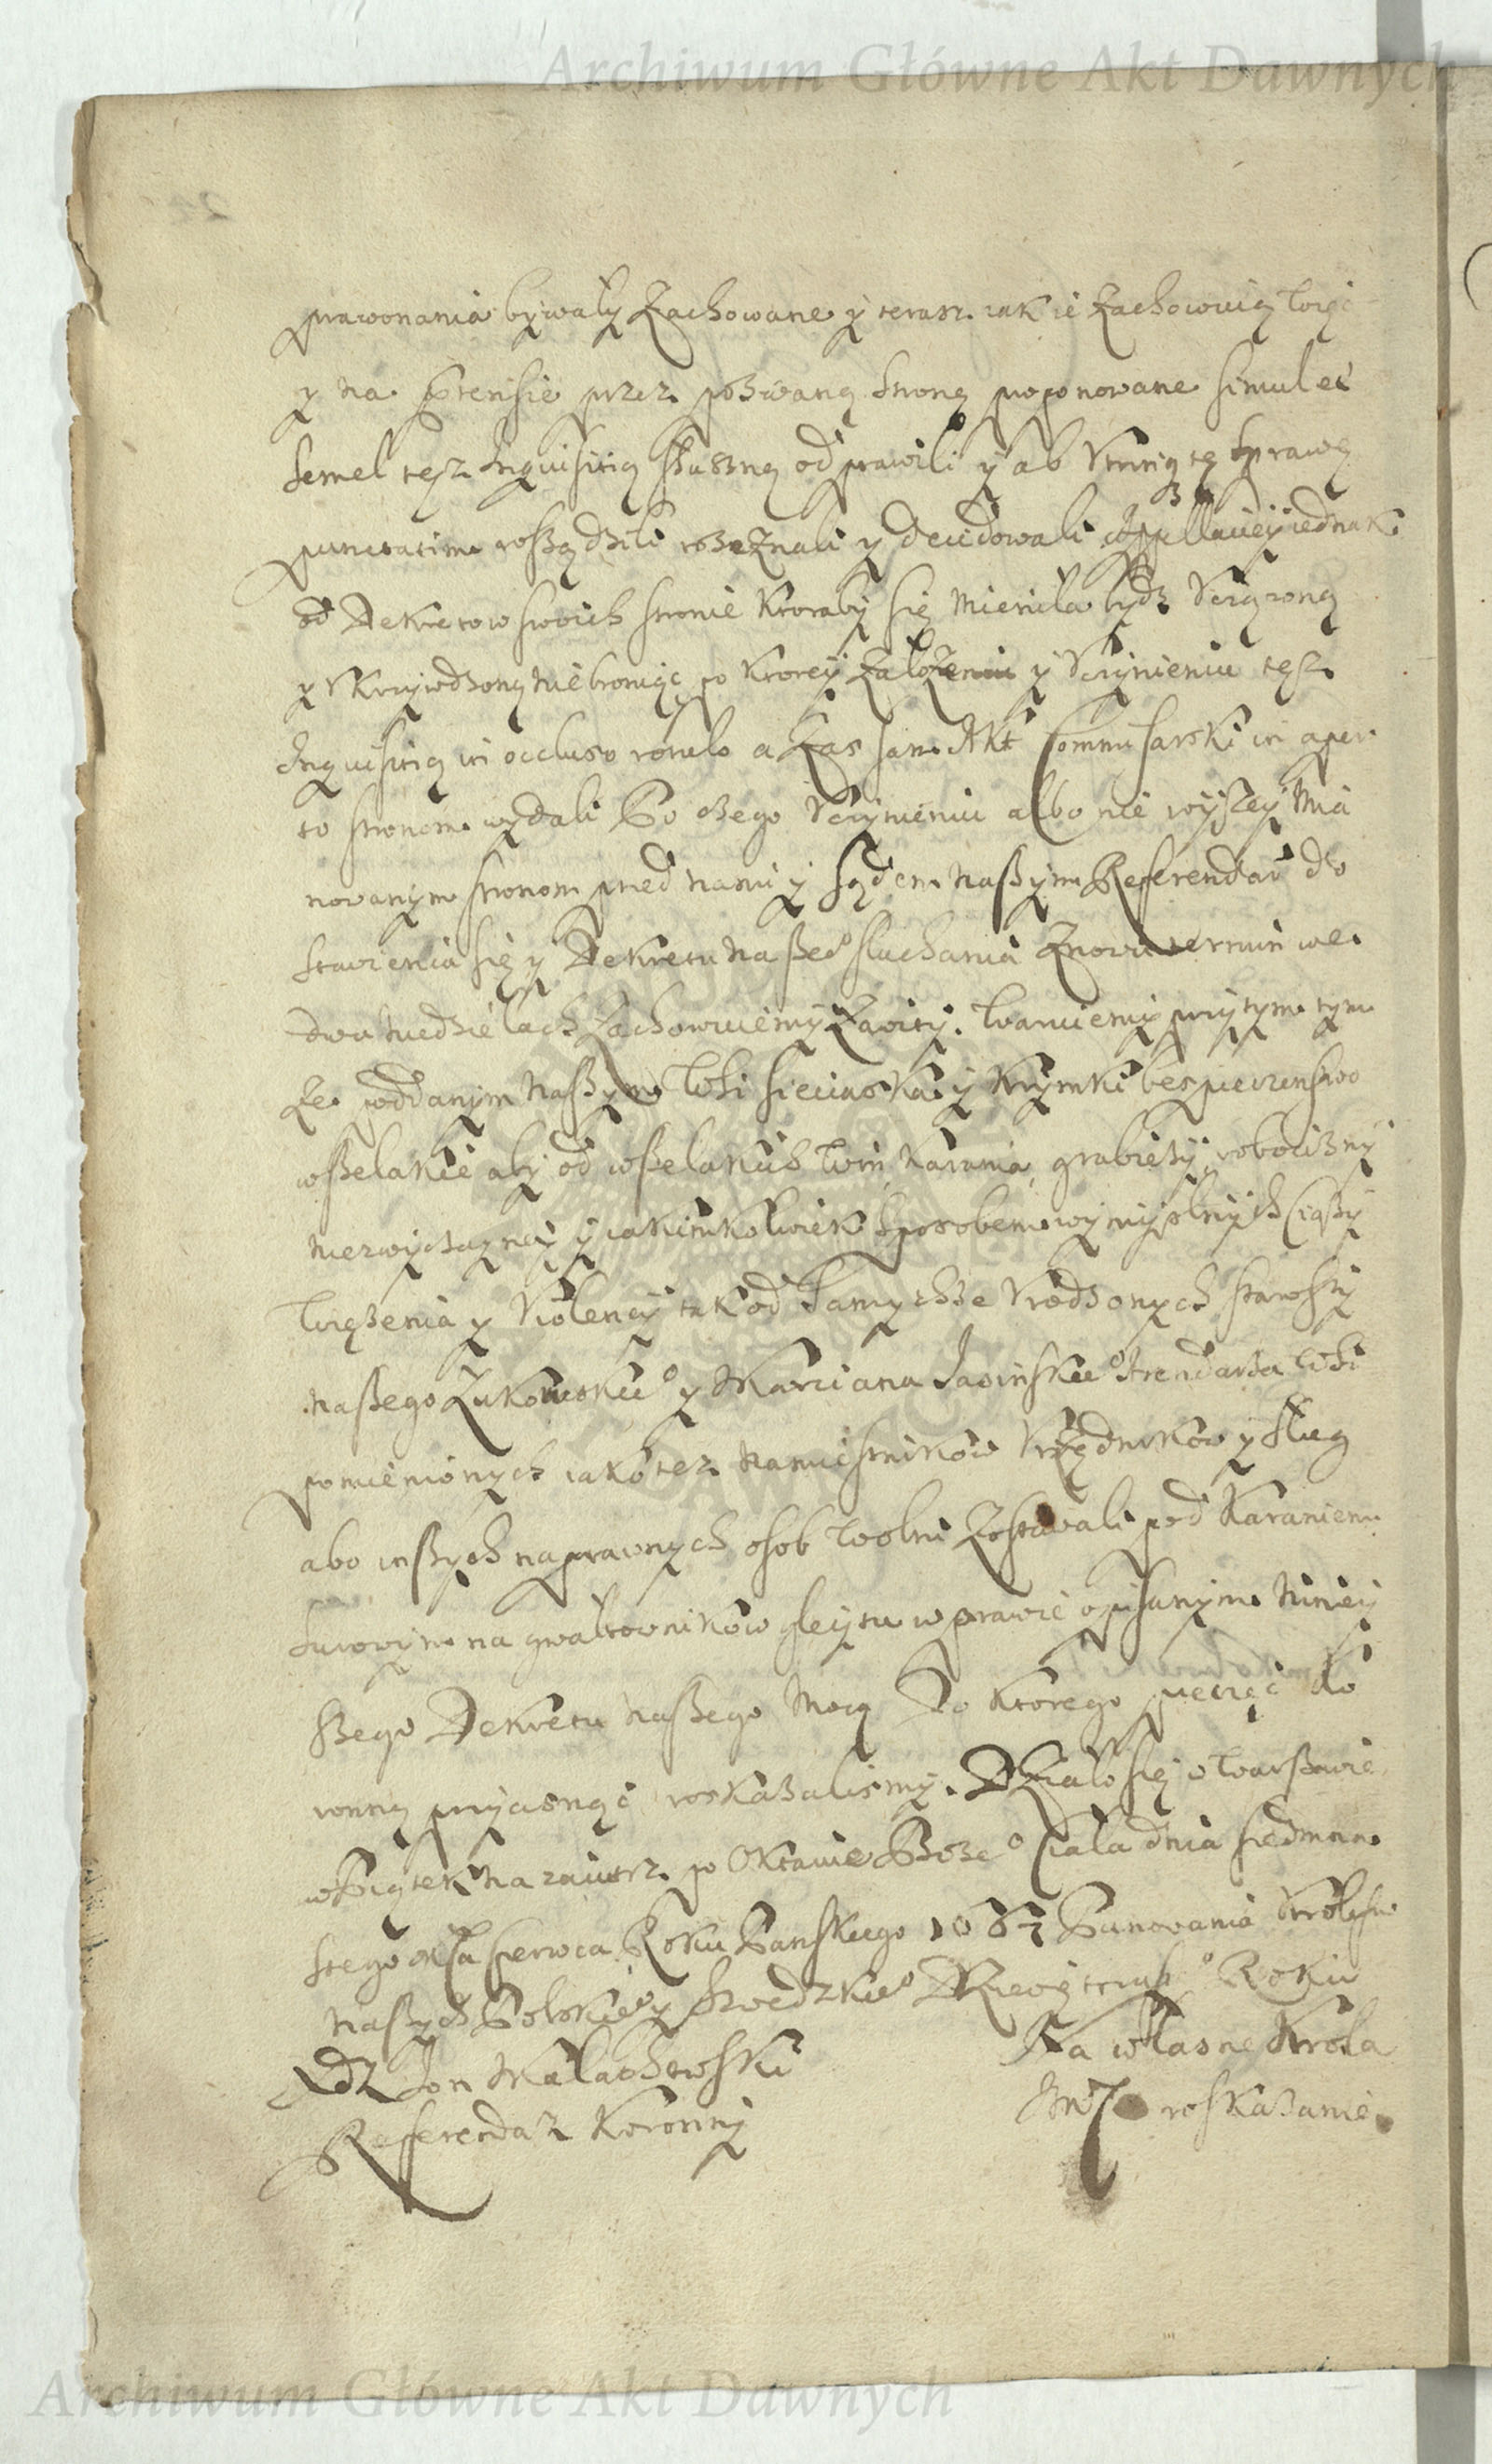 Archiwum Główne Akt Dawnych
prawowania bywały zachowane y teraz iakie zachowuią
y na prtensie przez pozwaną stronę proponowane simul et
semel tesz Inquisitią słuszną odprawili y ab utrinq tę sprawę
punctatim rossądzili rozeznali y decidowali Appellaciey iednak
od Dekretow swoich stronie ktoraby się mieniła bydz uciązoną
y ukrzywdzoną nie broniąc po ktorey założeniu y uczynieniu tesz
Inquisitią in occluso rotulo a zas sam Akt Commisarski in aper
to stronom wydali Po czego uczynieniu albo nie wyszey mia
nowanym stronom przed nami y sądem naszym Referendar do
stawienia się y Dekretu nasze⁰ słuchania znowu termin we
dwu niedzielach zachowuiemy zawity. Waruiemy przytym tym
ze poddanym naszym Wsi Sieciaska y Krzymki bespieczenstwo
wszelakie aby od wszelakich win karania grabiezy robocizny
niezwyczayney y iakimkolwiek sposobem wymyslnych ciąszy
Więzenia y Violencij tak od samychze Urodzonych starosty
naszego Łukowskie⁰ y Marciana Jasinskie⁰ Arendarza Wsi
pomienionych iako tez namiestnikow Urzędnikow y sług
abo inszych naprawnych osob wolni zostawali pod karaniem
surowym na gwałtownikow gleytu w prawie opisanym Niniey
szego Dekretu naszego mocą Do ktorego pieczęć ko
ronną przycisnąć roskazalismy. Działo się w Warszawie
w Piątek nazaiutrz po Oktawie Boze⁰ Ciała dnia siedmna
stego Msca Czerwca Roku Panskiego Panowania Krolestw
naszych Polskie⁰ y Szwedzkie⁰ Roku
Jon Małachowski
Referendarz Koronny
Na własne Krola
JMci roskazanie
Archiwum Główne Akt Dawnych